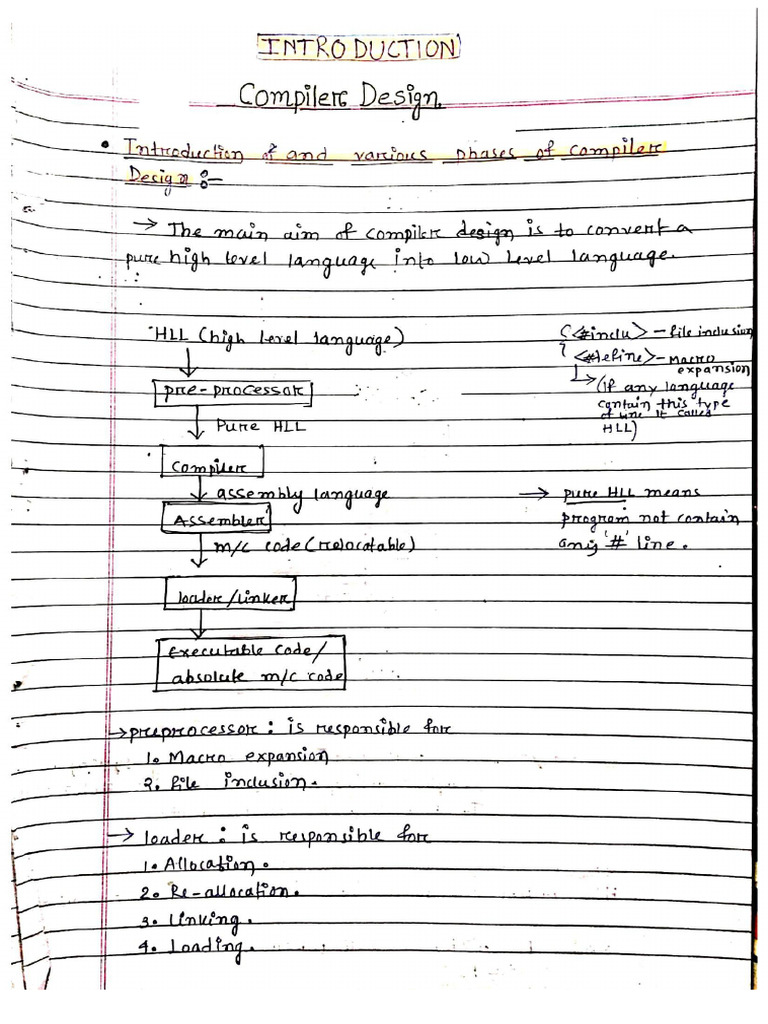 INTRODUCTION
Compiler Design
• Introduction of and various phases of compiler
Design :-
→ The main aim of compiler design is to convert a
pure high level language into low level language.
HLL (high level language)
pre-processor
Pure HLL
Compiler
assembly language
Assembler
m/c code (relocatable)
loader/linker
executable code/
absolute m/c code
<#inclu> - file inclusion
<#define> - macro
expansion
→ (if any language
contain this type
of line it called
HLL)
→ pure HLL means
program not contain
any '#' line.
→ preprocessor : is responsible for
1. Macro expansion
2. file inclusion.
→ loader : is responsible for
1. Allocation.
2. Re-allocation.
3. Linking.
4. Loading.